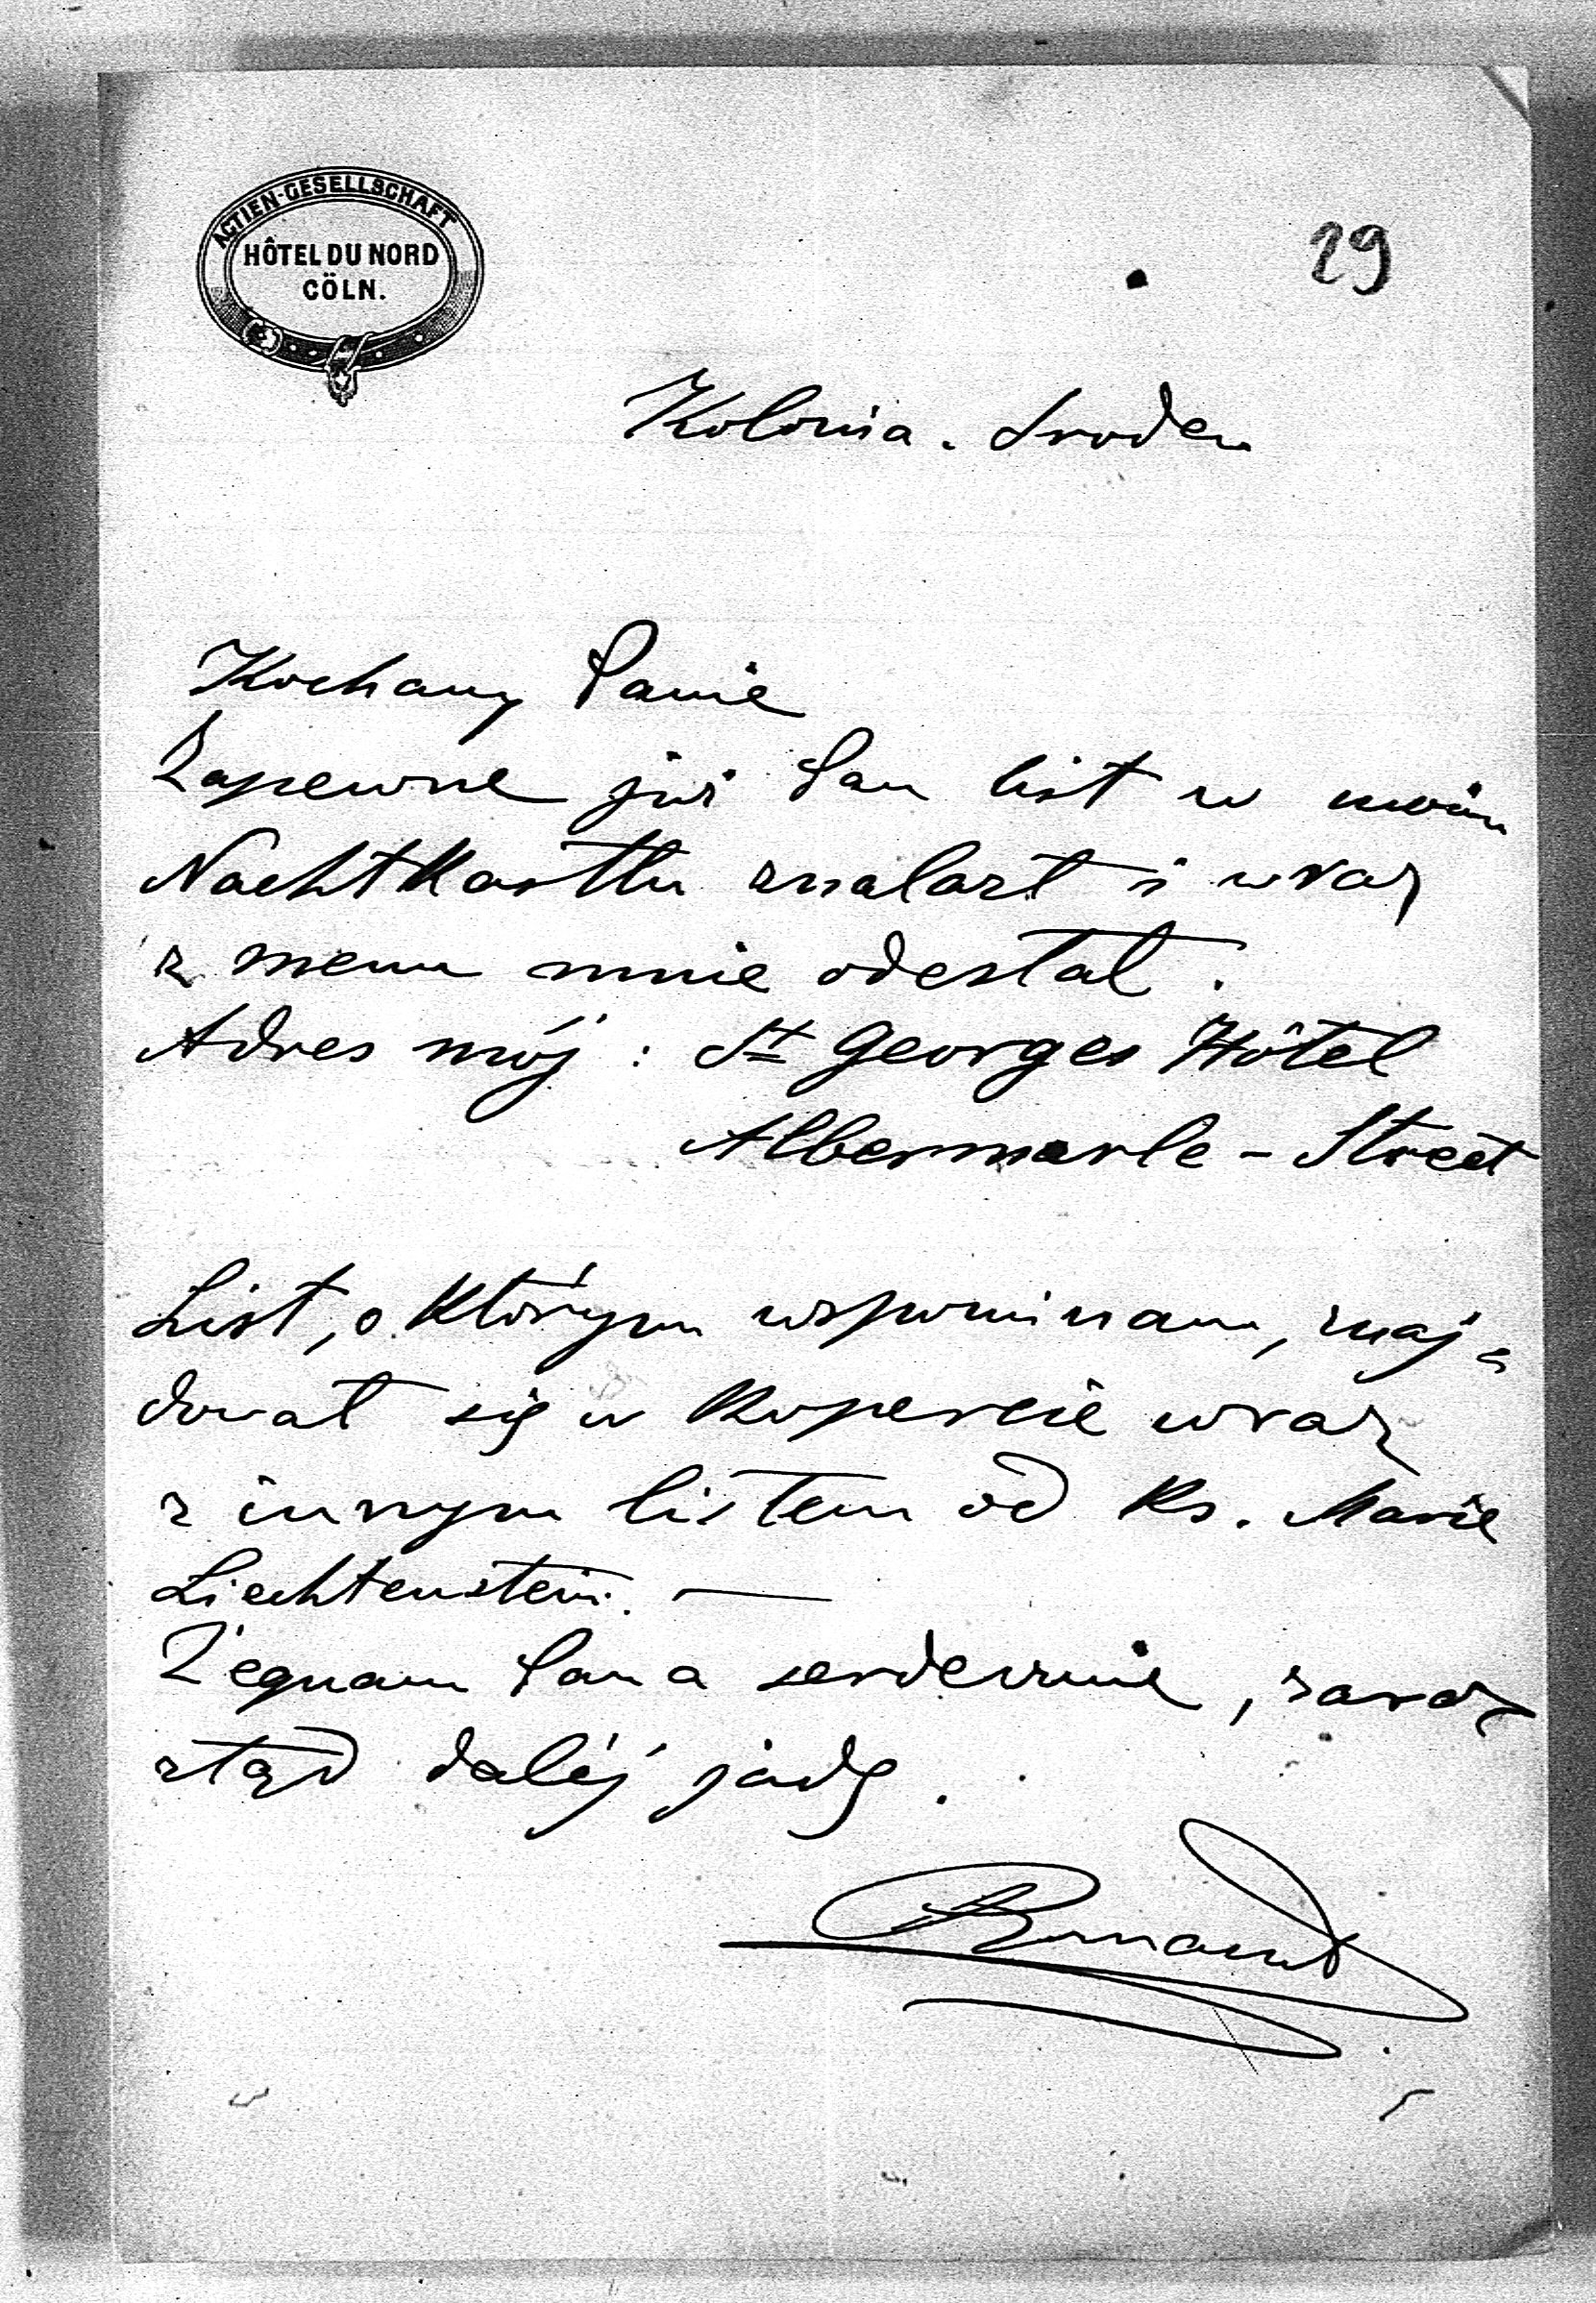 ACTIEN-GESELLSCHAFT
HÔTEL DU NORD
CÖLN.
29
Kolonia. Sroda
Kochany Panie
Zapewne już Pan list w moim
Nachtkastlu znalazł i wraz
z menu mnie odesłał.
Adres mój: St Georges Hôtel
Albermarle - Street
List, o którym wspominam, znaj=
dował się w kopercie wraz
z innym listem od Ks. Marie
Liechtenstein. —
Żegnam Pana serdecznie, zaraz
ztąd daléj jadę.